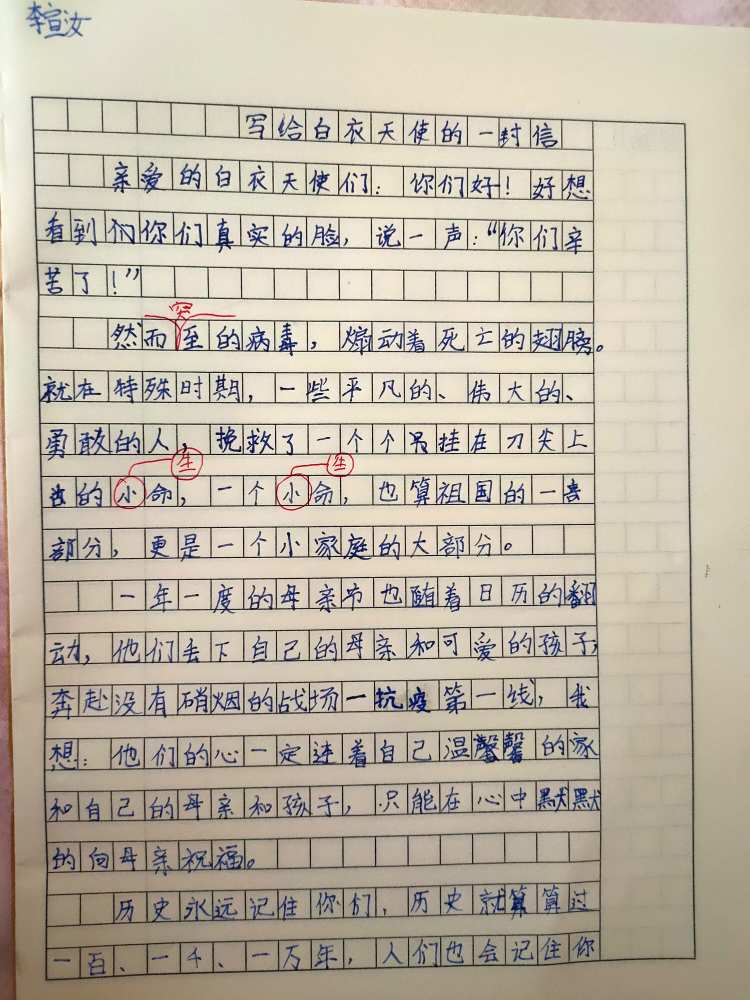 李宣汝
写给白衣天使的一封信
亲爱的白衣天使们：你们好！好想
看到们你们真实的脸，说一声：“你们辛
苦了！”
突
然而至的病毒，煽动着死亡的翅膀。
就在特殊时期，一些平凡的、伟大的、
勇敢的人，挽救了一个个吊挂在刀尖上
的小命，一个小命，也算祖国的一
生 生
部分，更是一个小家庭的大部分。
一年一度的母亲节也随着日历的翻
动，他们丢下自己的母亲和可爱的孩子，
奔赴没有硝烟的战场一抗疫第一线，我
想：他们的心一定连着自己温馨馨的家
和自己的母亲和孩子，只能在心中默默
的向母亲祝福。
历史永远记住你们，历史就算算过
一百、一千、一万年，人们也会记住你